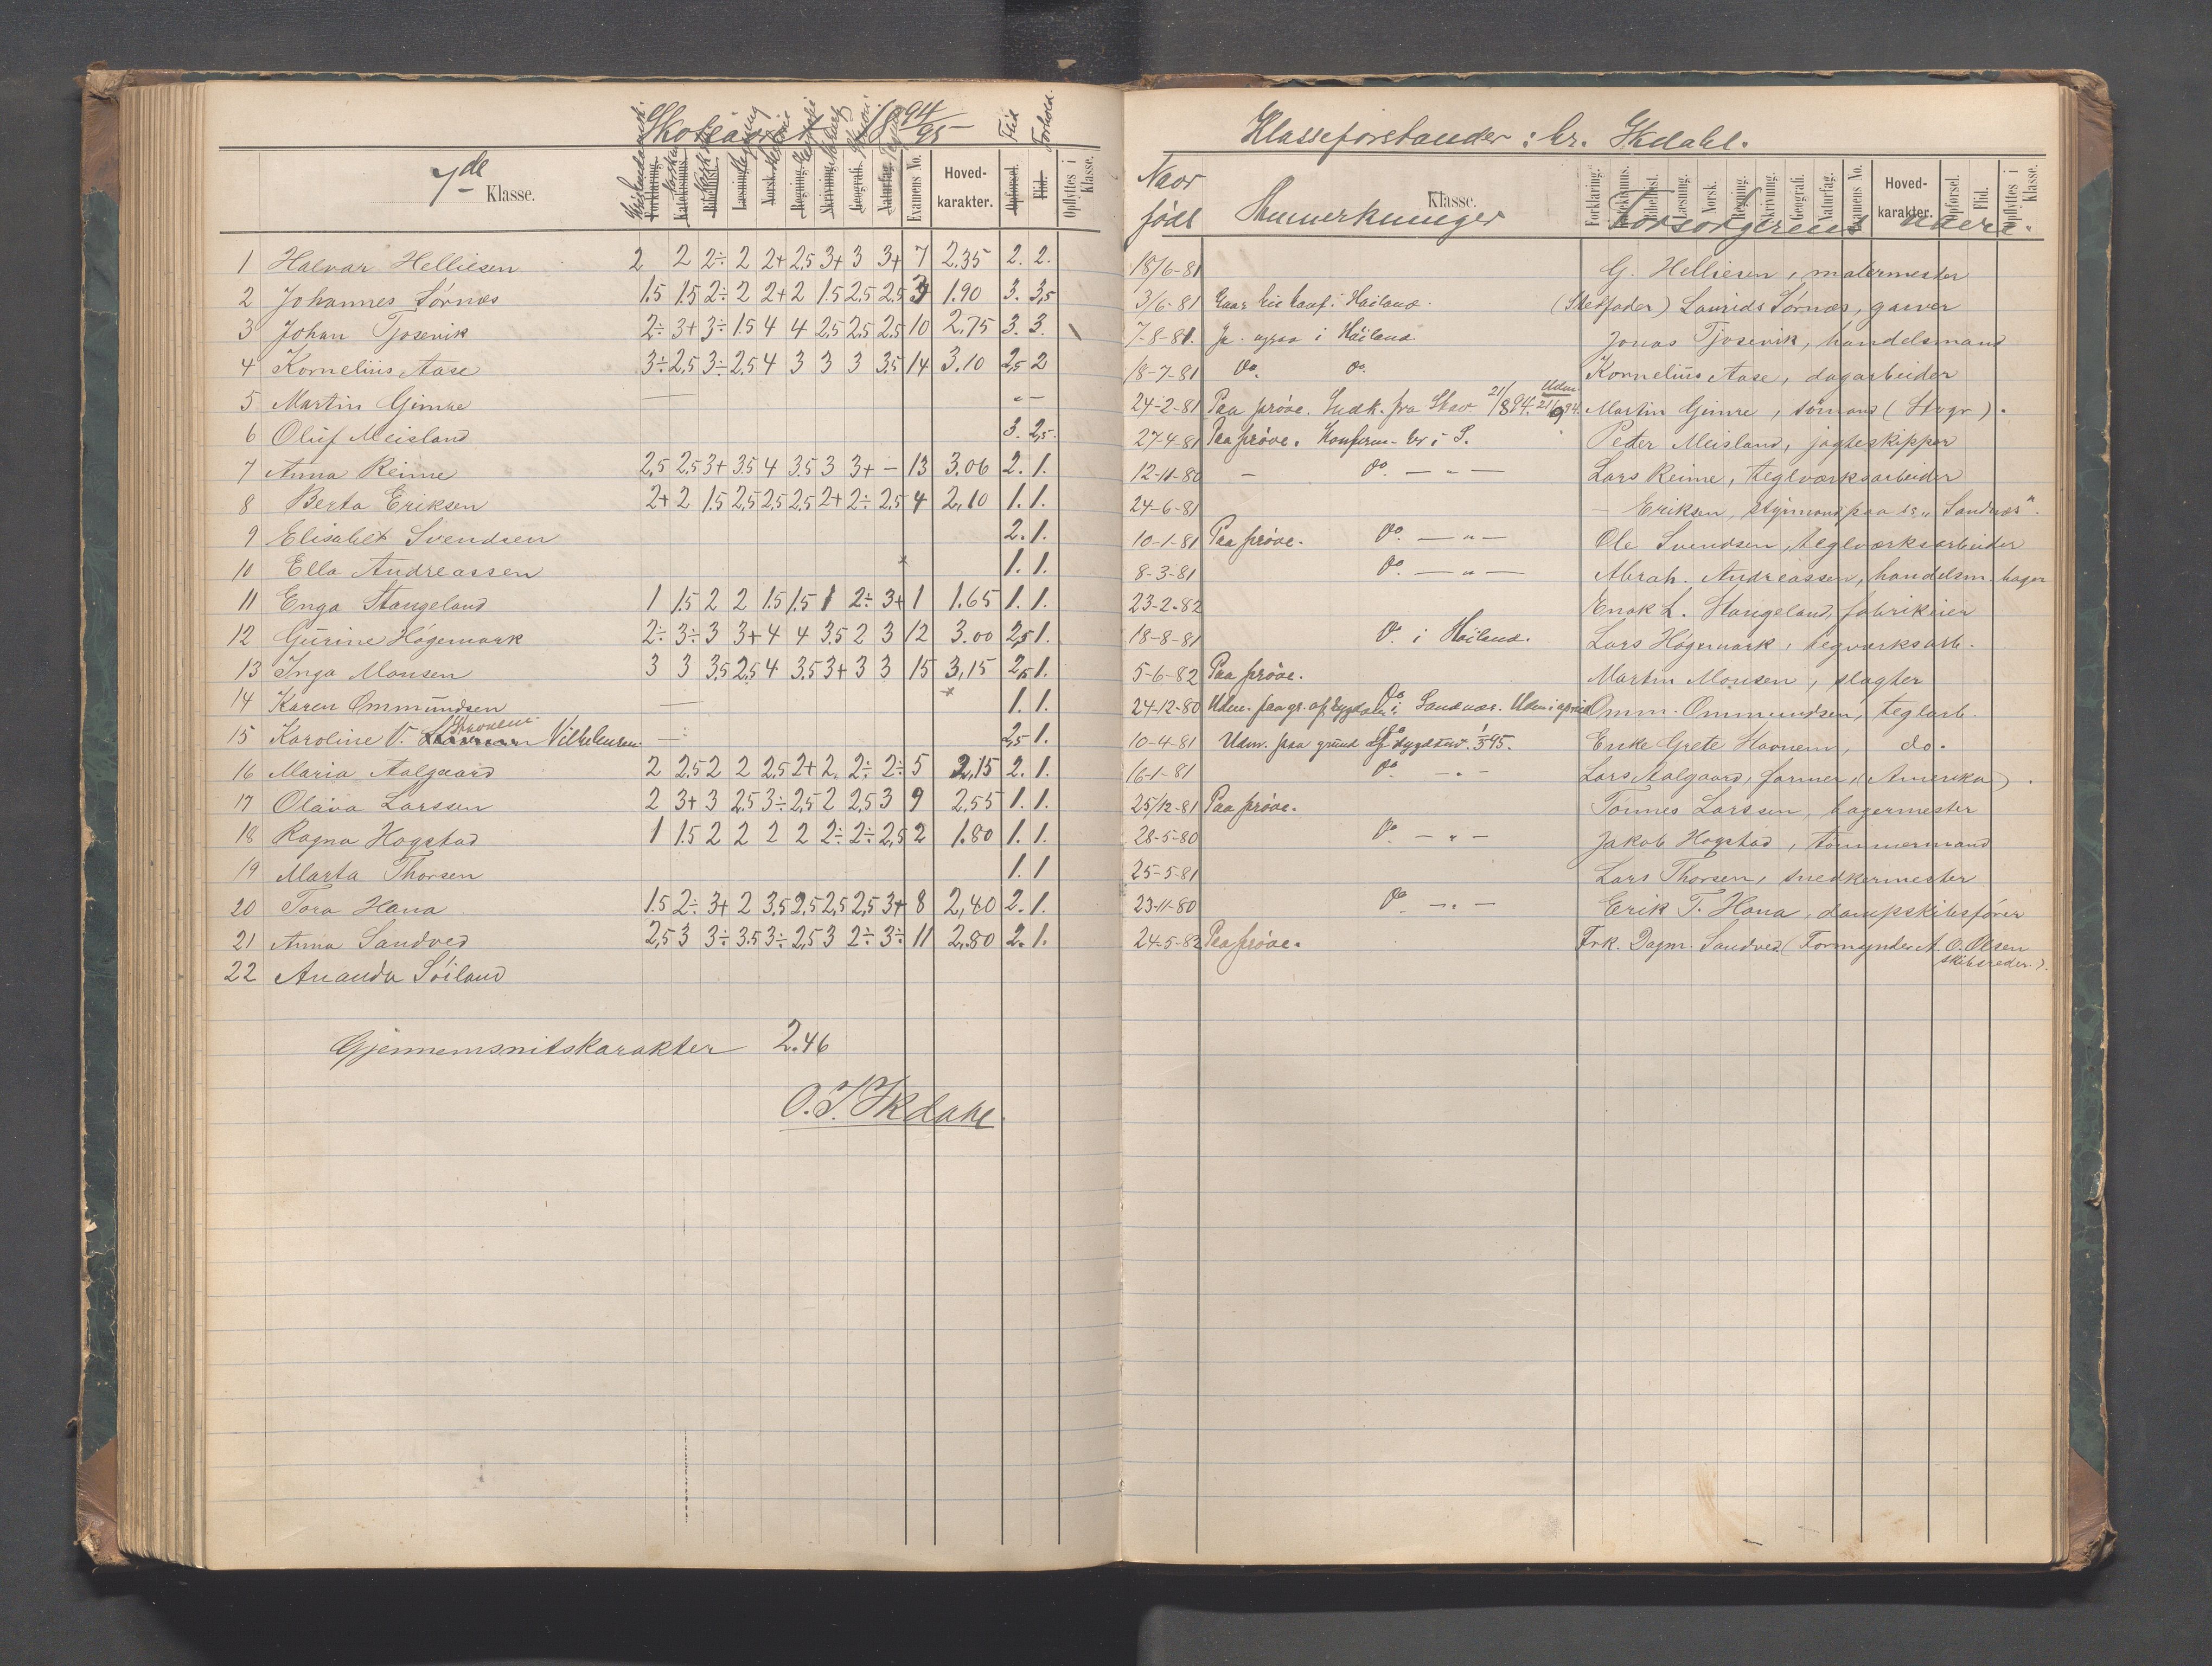 Skoleaaret 1894/95
7de Klasse.
Forklaring. Katekismus. Bibelhist. Læsning. Norsk. Regning. Skrivning. Geografi. Naturfag. Examens No. Hoved-karakter. Opførsel. Flid. Opflyttes i Klasse.
Flid Forhold.
1 Halvar Helliesen 2 2 2÷ 2 2+ 2,5 3+ 3 3+ 7 2,35 2. 2.
2 Johannes Sørnæs 1.5 1.5 2÷ 2 2+ 2 1.5 2,5 2,5 3 1.90 3. 3,5
3 Johan Tjosevik 2÷ 3+ 3÷ 1.5 4 4 2,5 2,5 2,5 10 2,75 3. 3.
4 Kornelius Aase 3÷ 2,5 3÷ 2,5 4 3 3 3 3,5 14 3.10 2,5 2
5 Martin Gimre — " —
6 Oluf Meisland 3. 2,5.
7 Anna Reime 2,5 2,5 3+ 3,5 4 3,5 3 3+ — 13 3.06 2. 1.
8 Berta Eriksen 2+ 2 1.5 2,5 2,5 2,5 2+ 2÷ 2,5 4 2,10 1. 1.
9 Elisabet Svendsen 2. 1.
10 Ella Andreassen 1. 1.
11 Enga Stangeland 1 1.5 2 2 1.5 1.5 1 2÷ 3+ 1 1.65 1. 1.
12 Gurine Høgemark 2÷ 3÷ 3 3+ 4 4 3.5 2 3 12 3.00 2,5 1.
13 Inga Monsen 3 3 3,5 2,5 4 3,5 3+ 3 3 15 3,15 2,5 1.
14 Karen Ommundsen — 1. 1.
15 Karoline V. Vilhelmsen — 2,5 1.
16 Maria Aalgaard 2 2,5 2 2 2,5 2+ 2. 2÷ 2÷ 5 2,15 2. 1.
17 Olava Larssen 2 3+ 3 2,5 3÷ 2,5 2 2,5 3 9 2,55 1. 1.
18 Ragna Hogstad 1 1.5 2 2 2 2 2÷ 2÷ 2,5 2 1.80 1. 1.
19 Marta Thorsen 1. 1
20 Tora Hana 1.5 2÷ 3+ 2 3,5 2,5 2,5 2,5 3+ 8 2,40 2. 1.
21 Anna Sandved 2,5 3 3÷ 3.5 3÷ 2,5 3 2÷ 3÷ 11 2,80 2. 1.
22 Ananda Söiland
Gjennemsnitskarakter 2.46
O. T. Skdahl.
Klasseforstander: hr. Skdahl.
Naar født Anmerkninger Klasse. Forsørgerens navn.
Forklaring. Katekismus. Bibelhist. Læsning. Norsk. Regning. Skrivning. Geografi. Naturfag. Examens No. Hoved-karakter. Opførsel. Flid. Opflyttes i Klasse.
18/6-81 G. Helliesen, malermester
3/6-81 Höiland. (Stedfader) Laurids Sørnæs, garver
7-8-81. i Höiland. Jonas Tjosevik, handelsmand
18-7-81 do. do. Kornelius Aase, dagarbeider
24-2-81 Paa prøve. Indk. fra Stav. 21/8 94. Udm. Martin Gimre, sømand (Stvgr).
27-4-81 Paa prøve. Konfirm. her i S. Peter Meisland, jagteskipper
12-11-80 — do. — " — Lars Reime, teglværksarbeider
24-6-81 — Eriksen, styrmand paa ds. "Sandnæs".
10-1-81 Paa prøve. do. — " — Ole Svendsen, teglværksarbeider
8-3-81 do. — " — Abrah. Andreassen, handelsm. bager
23-2-82 Enok L. Stangeland, fabrikeier
18-8-81 do. i Höiland. Lars Høgemark, tegværksarb.
5-6-82 Paa prøve. Martin Monsen, slagter
24-12-80 Udm. paa gr. af sygdom i Sandnæs. Udm. i april Omm. Ommundsen, teglarb.
10-4-81 Udm. paa grund af sygdom. 1/3 95. Enke Grete Havnem, do.
16-1-81 do. — " — Lars Aalgaard, farmer, (Amerika).
25/12-81 Paa prøve. Tønnes Larssen, bagermester
28-5-80 do. — " — Jakob Hogstad, tømmermand
25-5-81 Lars Thorsen, snedkermester
23-11-80 do. — " — Erik T. Hana, dampskibsfører
24-5-82 Paa prøve. Frk. Dagm. Sandved (Formynder A. O. Olsen
skibsreder.).